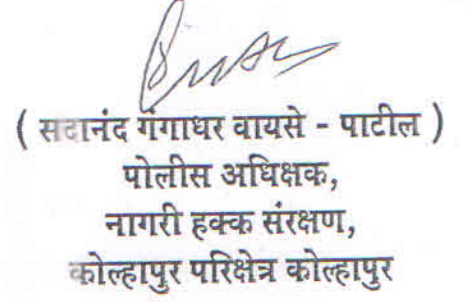 ( सदानंद गंगाधर वायसे - पाटील )
पोलीस अधिक्षक,
नागरी हक्क संरक्षण,
कोल्हापुर परिक्षेत्र कोल्हापुर